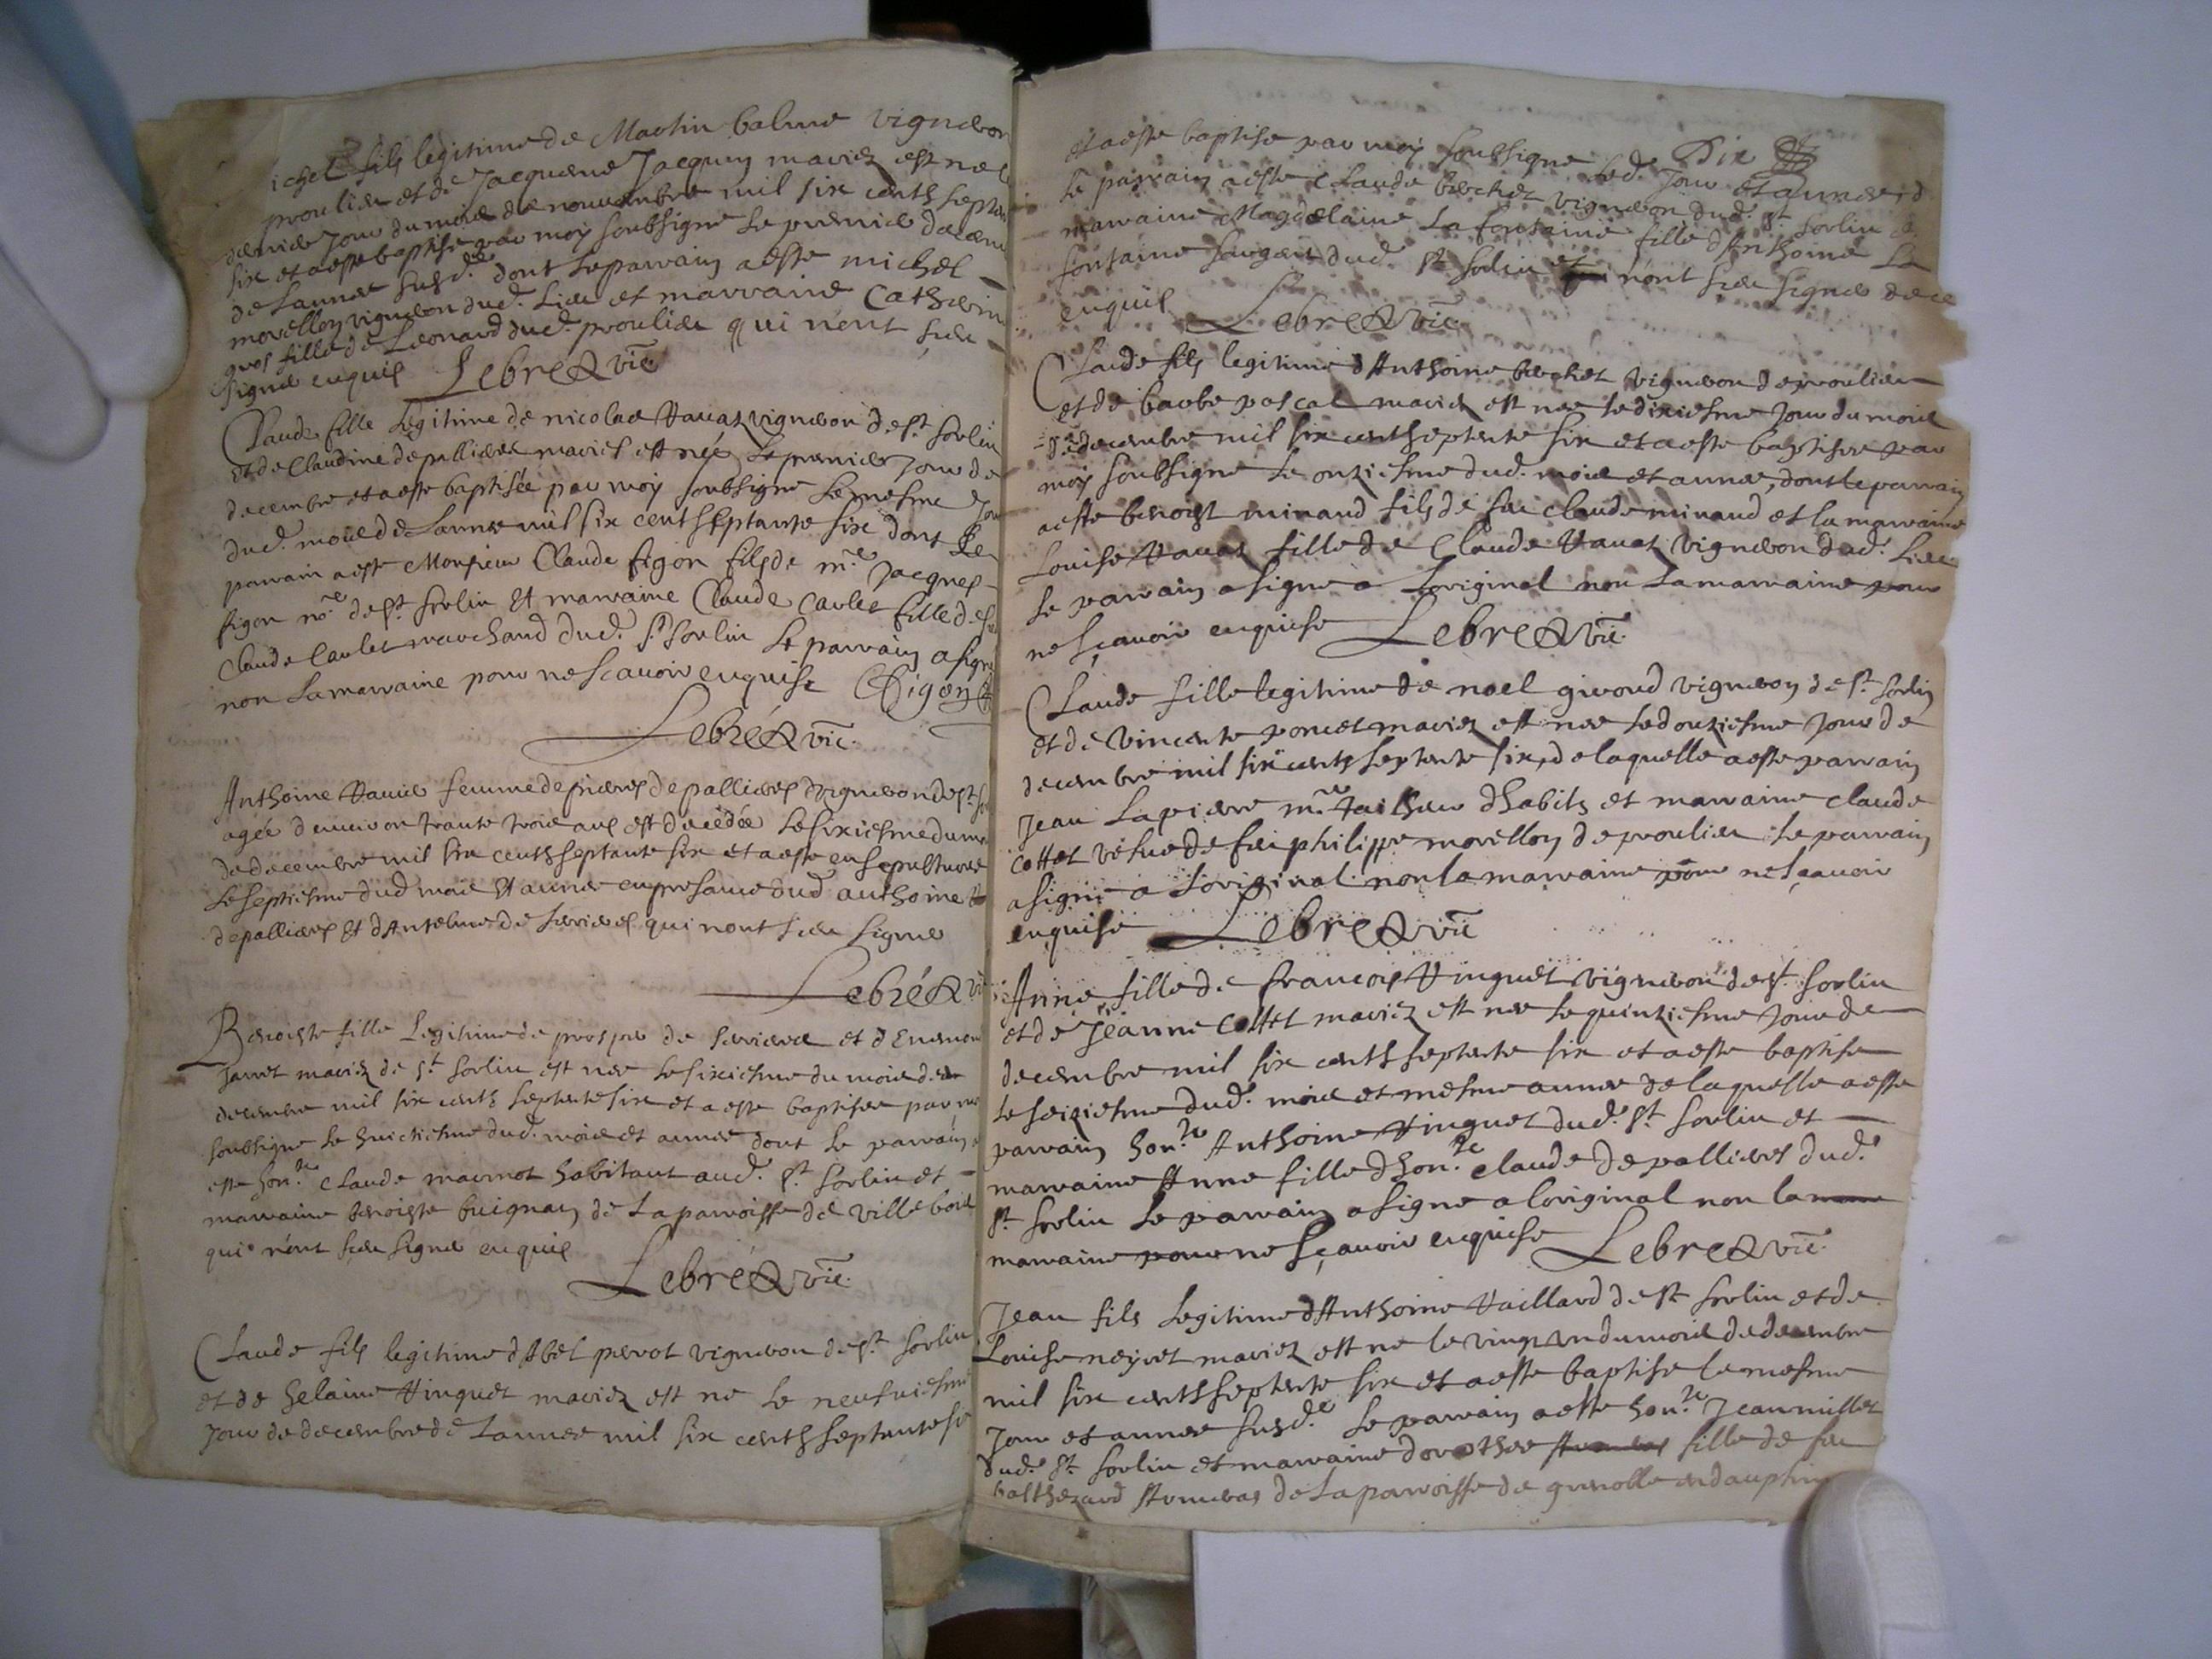 ichel fils legitime de Martin balme vigneron
proulieu et de Jacqueme Jacquin mariez est ne l
dernier Jour du mois de novembre mil six cents septan
six et a este baptise par moy soubsigne le premier decem
de lannee susd.e dont le parrain a este michel
morellon vigneron dud. lieu et marraine Catherin
fille de Leonard dud. proulieu qui n'ont sceu
signer enquis Lebre vic.
Claude fille Legitime de nicolas Vavaz vigneron de st. sorlin
et de Claudine depallieres mariez est née le premier Jour de
decembre et a este baptisée par moy soubsigne le mesme Jou
dud. mois de lannee mil six cent septante six dont Le
parrain a este Monsieur Claude figon fils de m.e Jacques
figon no.re de st. sorlin et marraine Claude Carlet fille de
Claude Carlet marchand dud. st. sorlin le parrain a signe
non la marraine pour ne scavoir enquise CFigon
Lebré vic.
Anthoine femme de pierre depallieres vigneron de st. so
agée denviron trante trois ans est decedée le sixiesme du mo
de decembre mil six cents septante six et a este ensepulturee
le septiesme dud mois et annee en presance dud anthoine
depallieres et dAntelme de serrieres qui nont sceu signer
Lebré vi
Benoiste fille Legitime de prospre de serrieres et dEnemon
Janet mariez de st. sorlin est nee le sixiesme du mois de
decembre mil six cents septente six et a este baptisee par mo
soubsigne le huictiesme dud. mois et annee dont le parrain
este hon.le Claude marmot habitant aud. st. sorlin et
marraine benoiste buignan de la parroisse de villebois
qui n'ont sceu signer enquis
Lebré vic.
Claude fils legitime dAbel perrot vigneron de st. sorlin
et de helaine Hinguet mariez est ne le neufviesme
Jour de decembre de Lannee mil six cents septante si
Dix
et a este baptise par moy soubsigne led. Jour et annee, d
le parrain a este Claude berchet vigneron dud. st. sorlin et
marraine Magdelaine La fontaine fille dAnthoine La
fontaine sergent dud. st. sorlin et n'ont sceu signer de ce
enquis Lebre vic
Claude fils legitime dAnthoine berchet vigneron de proulieu
et de barbe pascal mariez est nee le dixiesme Jour du mois
de decembre mil six cent septente six et a este baptisee par
moy soubsigne le onziesme dud. mois et annee, dont le parrain
a este benoist minand fils de feu claude minand et la marraine
Louise Vavaz fille de Claude Vavaz vigneron dud. Lieu
le parrain a signe a Loriginal non La marraine pour
ne sçavoir enquise Lebre vic.
Claude fille legitime de noel giroud vigneron de st. sorlin
et de Vincente poncet mariez est nee le douziesme Jour de
decembre mil six cents septente six, de laquelle a este parrain
Jean Lapierre m.re tailheur dhabits et marraine claude
cottet vefve de feu philippe morellon de proulieu le parrain
a signe a Loriginal non la marraine pour ne sçavoir
enquise Lebre vic
Anne fille de françois Hinguet vigneron de st. sorlin
et de Jeanne Cottet mariez est nee le quinziesme Jour de
decembre mil six cents septente six et a este baptise
le seiziesme dud. mois et mesme annee de laquelle a este
parrain hon.le Anthoine Hinguet dud. st. sorlin et
marraine Anne fille dhon.le Claude depallieres dud.
st. sorlin le parrain a signe a loriginal non la
marraine pour ne sçavoir enquise Lebre vic.
Jean fils Legitime dAnthoine Vaillard de st. sorlin et de
Louise neyret mariez est ne le vingt un du mois de decembre
mil six cents septente six et a este baptise le mesme
Jour et annee susd.e le parrain a este hon.le Jean millet
dud. st. sorlin et marraine dorothee fille de feu
balthezard de la parroisse de grenoble en dauphin